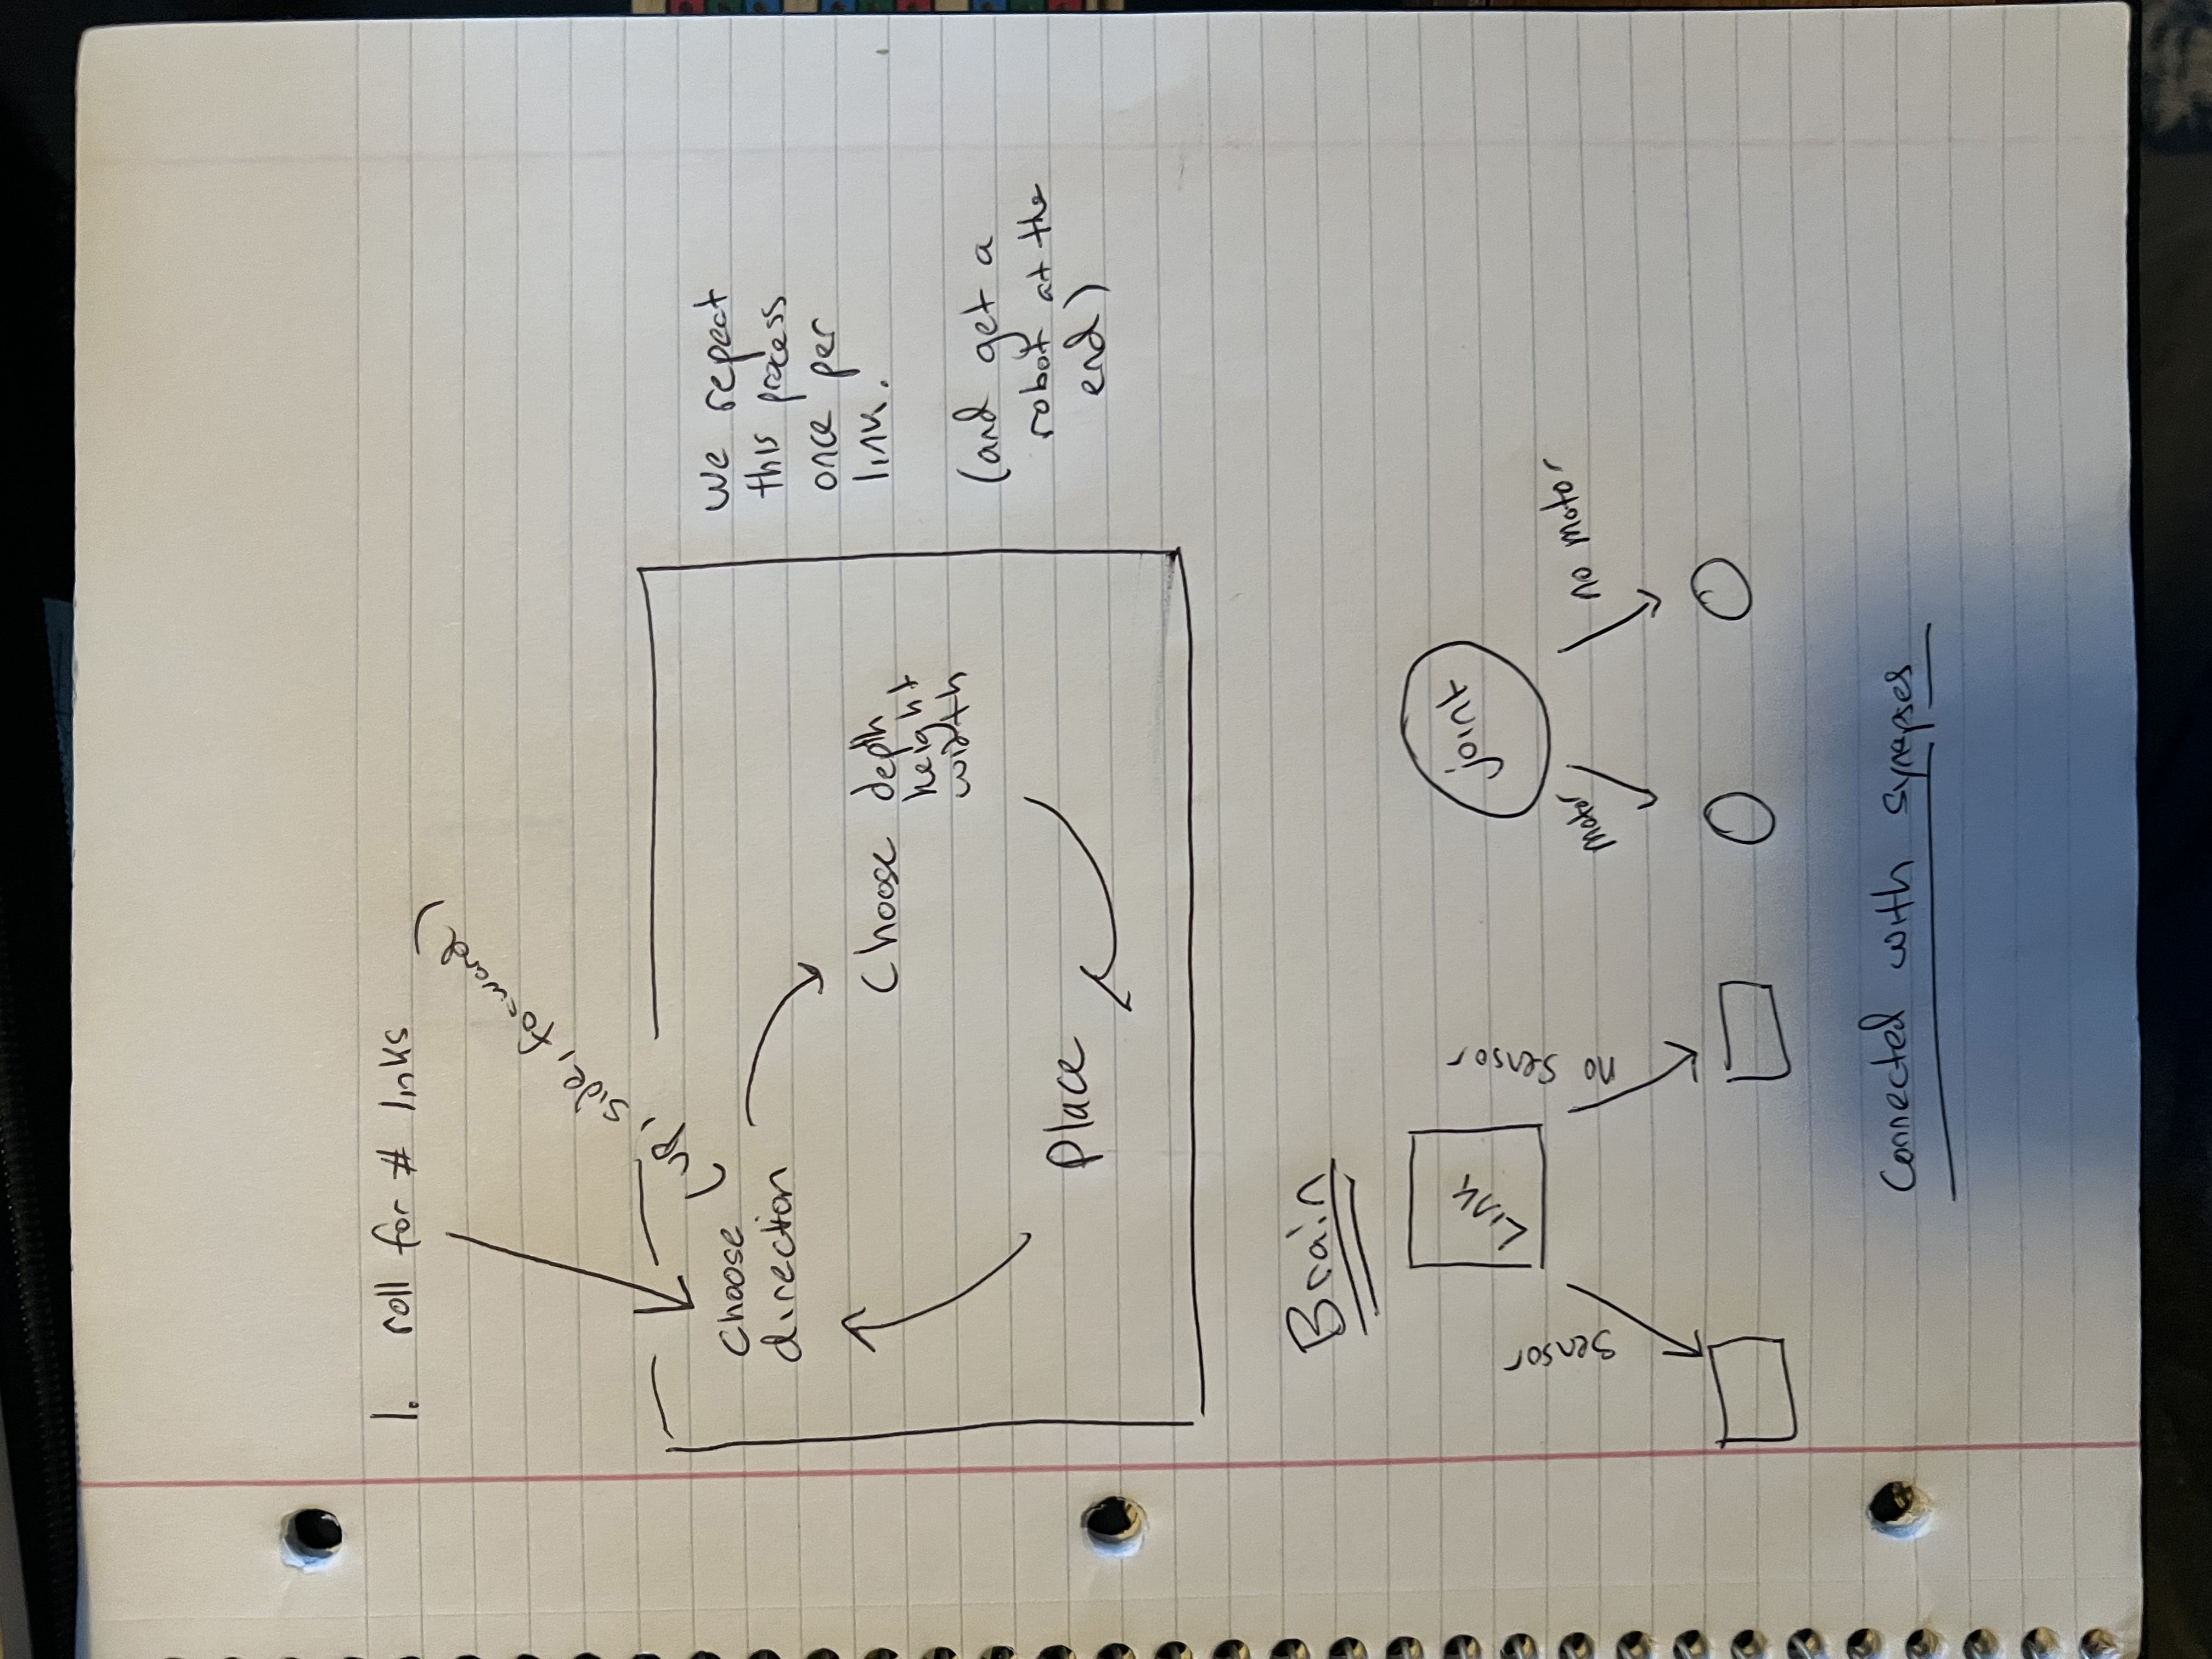 1. roll for # links
(up, side, forward)
Choose
direction
Choose depth
height
width
Place
we repeat
this process
once per
link.
(and get a
robot at the
end)
Brain
Link
sensor
no sensor
joint
motor
no motor
Connected with synapses